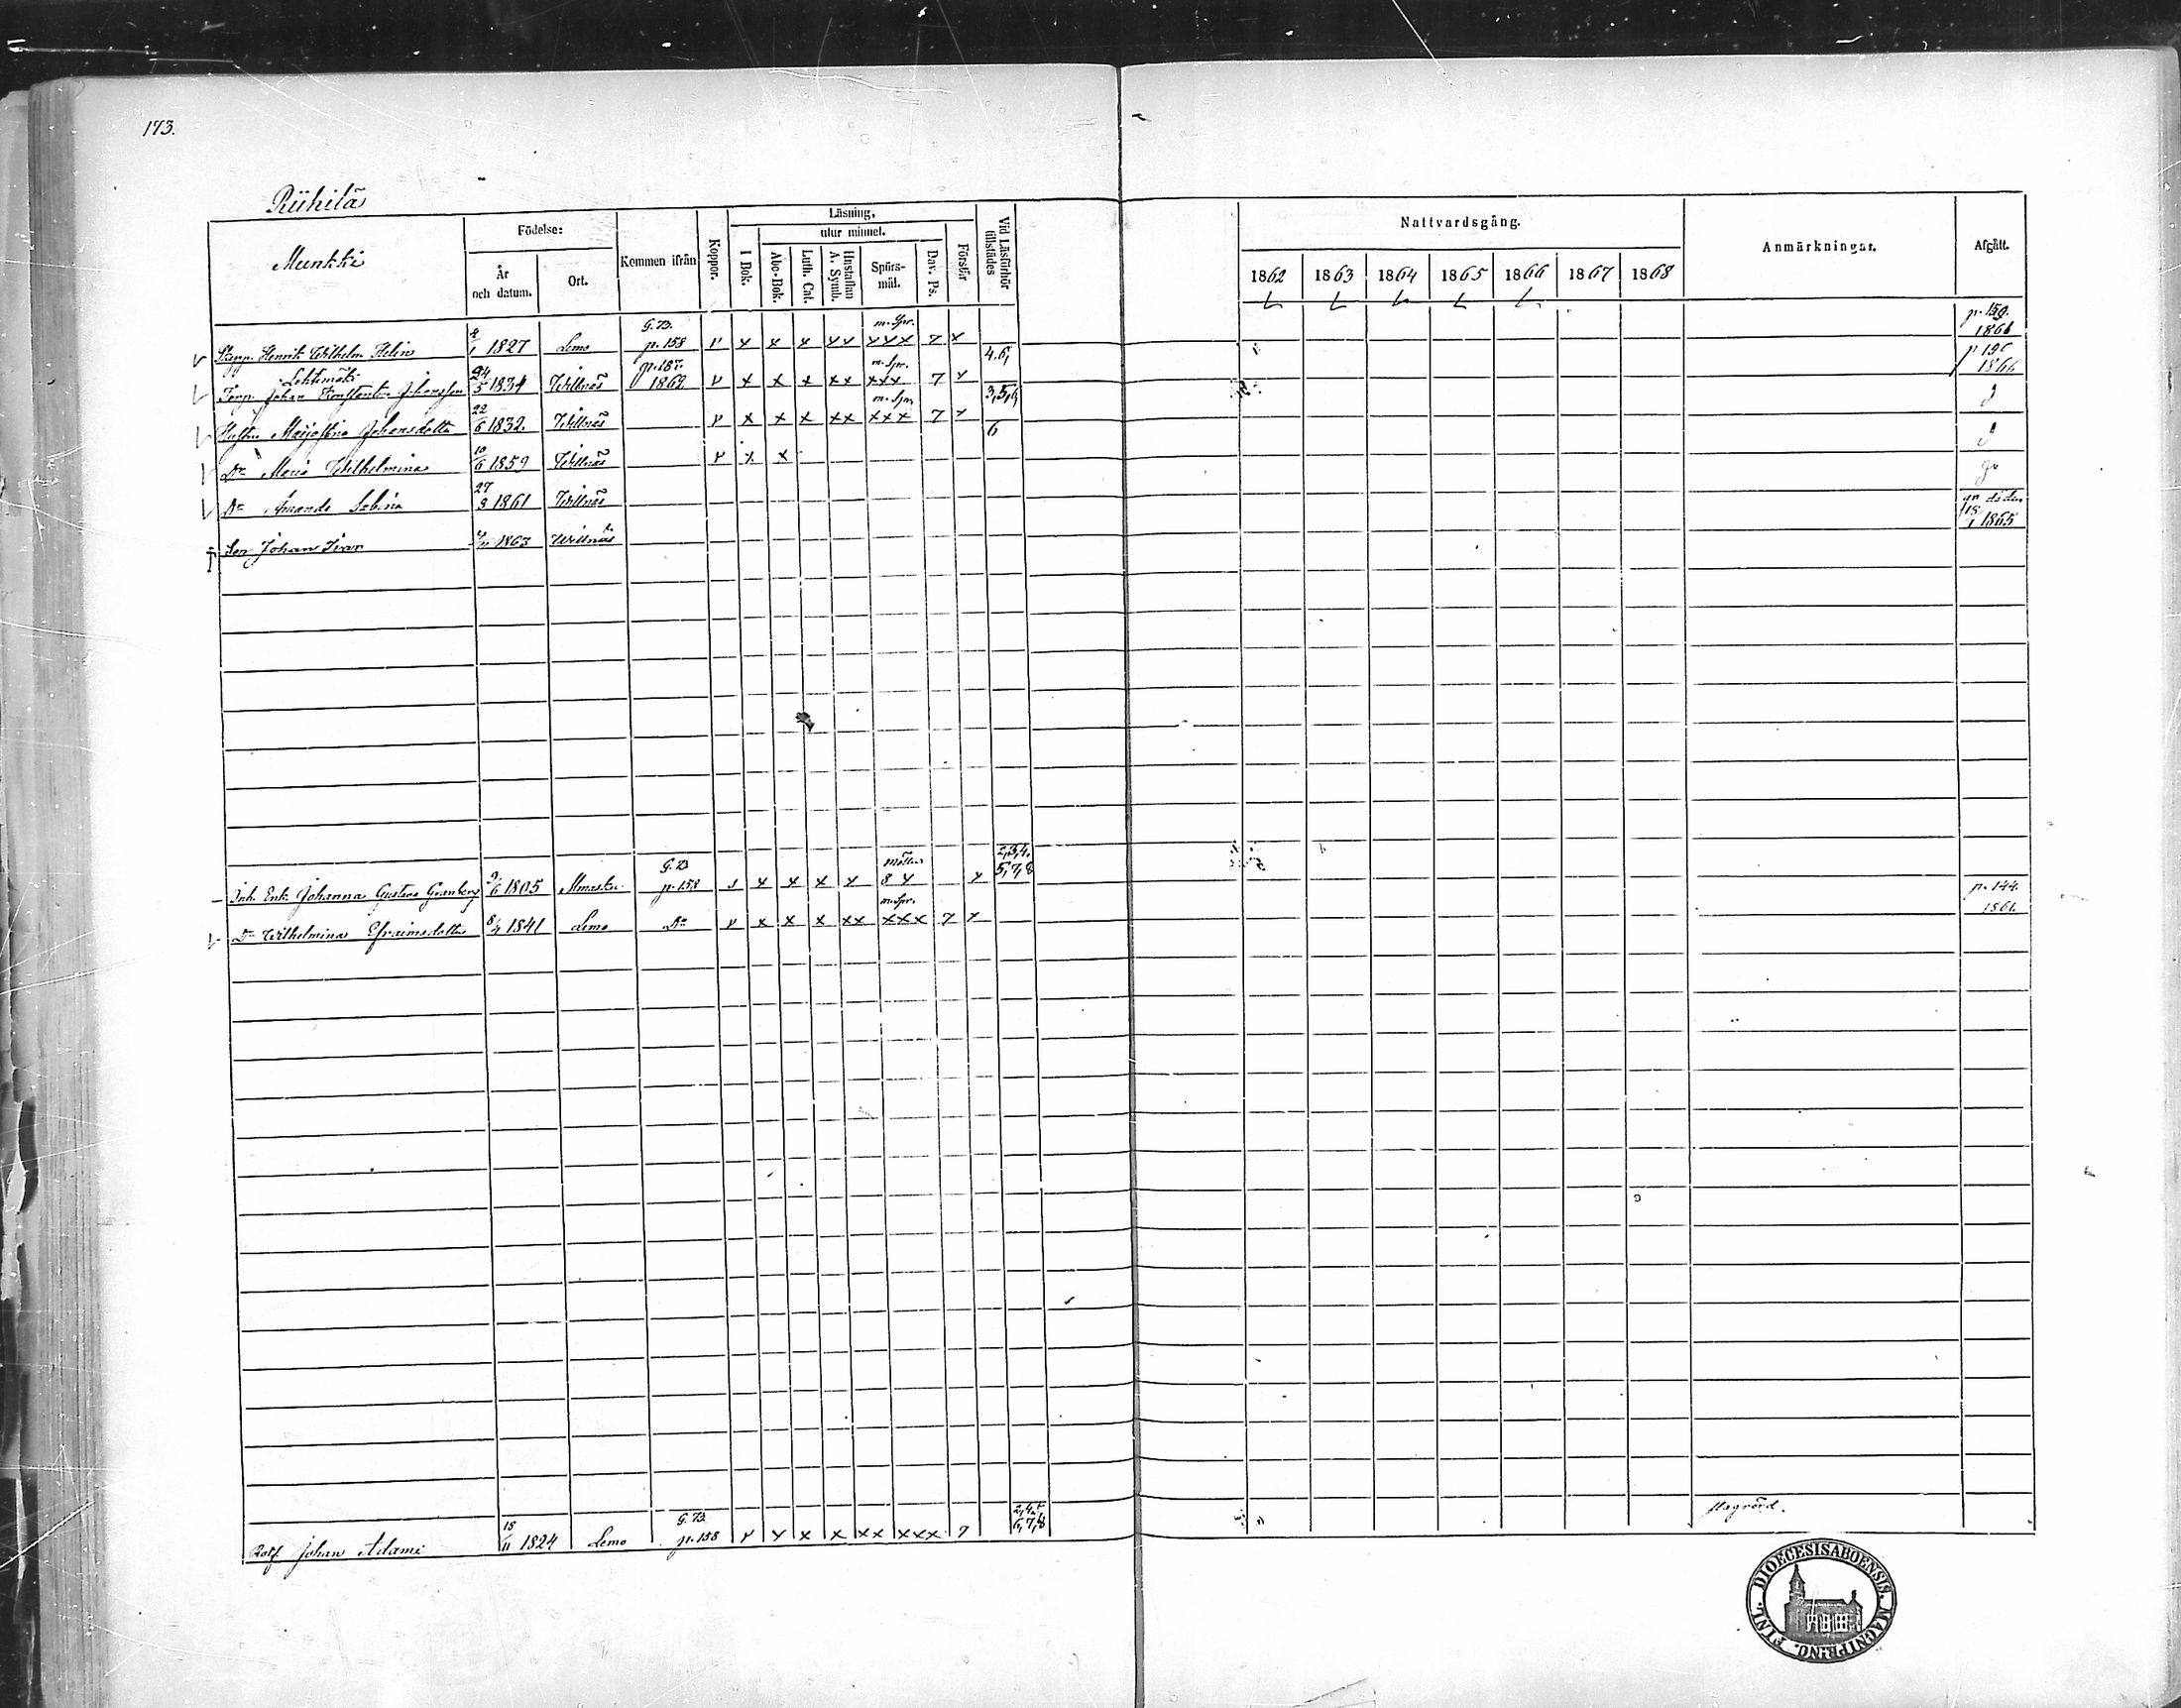 173.
Riihilä
Munkki
Födelse:
År och datum.
Ort.
Kommen ifrån
Koppor.
Läsning.
I Bok.
utur minnet.
Abc-Bok.
Luth. Cat.
Hustaflan A. Symb.
Spörsmål.
Dav. Ps.
Förstår
Vid Läsförhör tillstädes
Nattvardsgång.
1862 1863 1864 1865 1866 1867 1868
Anmärkningar.
Afgått.
Henrik Wilhelm Helin 4/1 1827 Lemo G. B. p. 158 v x x x xx m. Spr. xxx 7 x 4.6, p. 159. 1866
Lehtimäki
Torp. Johan Konstantin Johansson 24/5 1834 Willnäs 1862 v x x x xx m. Spr. xxx 7 x 3,5,6, 1866
Hustru Majastina Johansdotter 22/6 1832. Willnäs v x x x xx m. Spr. xxx 7 x 6
Dr Maria Wilhelmina 10/6 1859 Willnäs v x x
Dr Amanda Sabina 27/3 1861 Willnäs
Son Johan Ivar 1863 Willnäs död 18/1 1865
Inh. Enk. Johanna Gustava Granberg 9/6 1805 G. B. p. 158 x x x x 8 x x 2,3,4. 5,7,8
Dr Wilhelmina Efraimsdotter 8/4 1841 Lemo Do v x x x xx m. Spr. xxx 7 x p. 144. 1861.
Rotf. Johan Adami 18/11 1824 Lemo G. B. p. 158 v x x x xx xxx 7 2,4,5 6,7,8
DIOECESIS ABOENSIS. MAGNI PRINC. FINL.